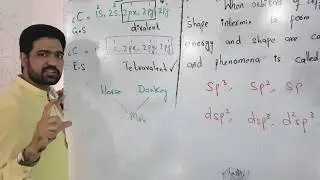 ₆C = 1s, 2s, 2px, 2py, 2pz
G.S
divalent
₆C =
2px, 2py, 2pz
E.S
Tetravalent ✓
Horse Donkey
When orbitals of
shape intermix to form
energy and shape are
and phenomena is called
sp³, sp², sp
dsp², dsp³, d²sp³